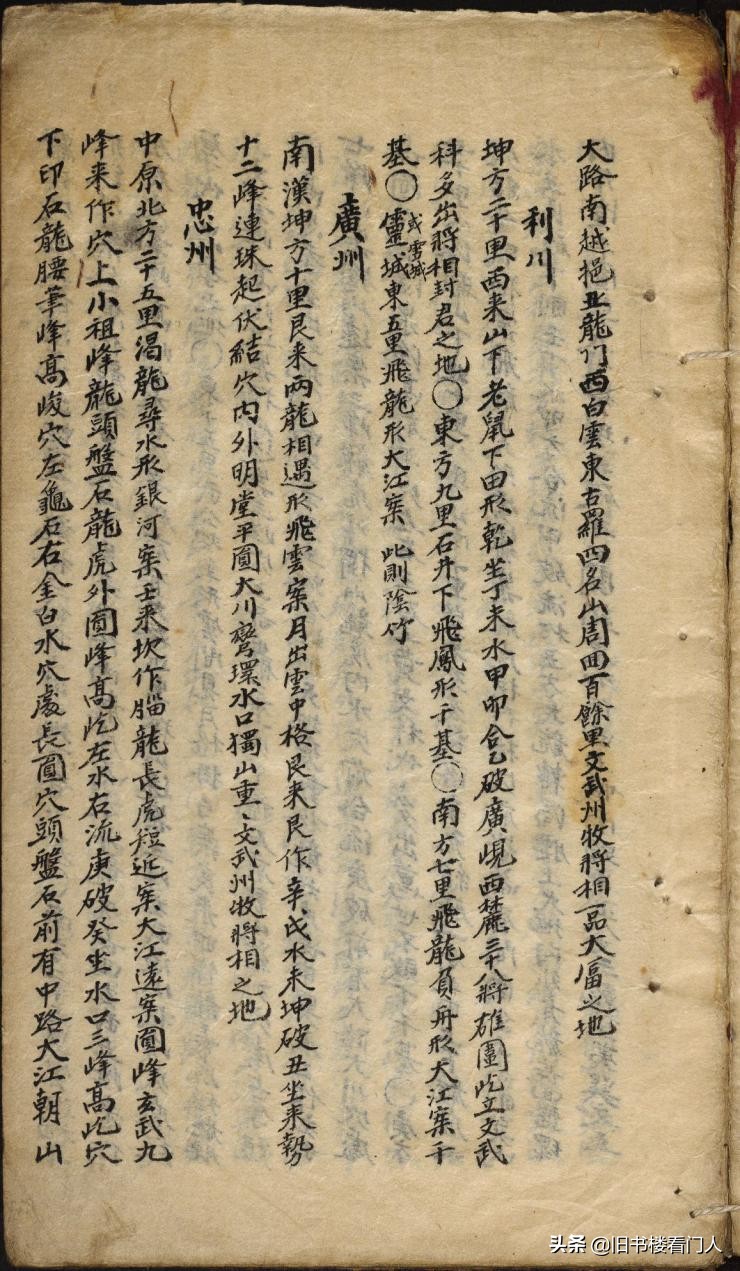 大路南越挹丑龍门西白雲東古羅四名山周回百餘里文武州牧將相一品大富之地
利川
坤方二十里西来山下老鼠下田形乾坐丁未水甲卯合乙破廣峴西麓三十八將雄圍屹立文武
科多出將相封君之地〇東方九里石井下飛鳳形千基〇南方七里飛龍負舟形大江案千
基〇靈城東五里飛龍形大江案 此則陰竹
或雪城
廣州
南漢坤方十里艮来两龍相遇形飛雲案月出雲中格艮来艮作辛戌水未坤破丑坐来勢
十二峰連珠起伏結穴内外明堂平圓大川彎環水口獨山重〻文武州牧將相之地
忠州
中原北方二十五里渴龍尋水形銀河案壬来坎作腦龍長虎短近案大江遠案圓峰玄武九
峰来作穴上小祖峰龍頭盤石龍虎外圓峰高屹左水右流庚破癸坐水口三峰高屹穴
下印石龍腰華峰高峻穴左龜石右金白水穴處長圓穴頭盤石前有中路大江朝山
头条 @旧书楼看门人